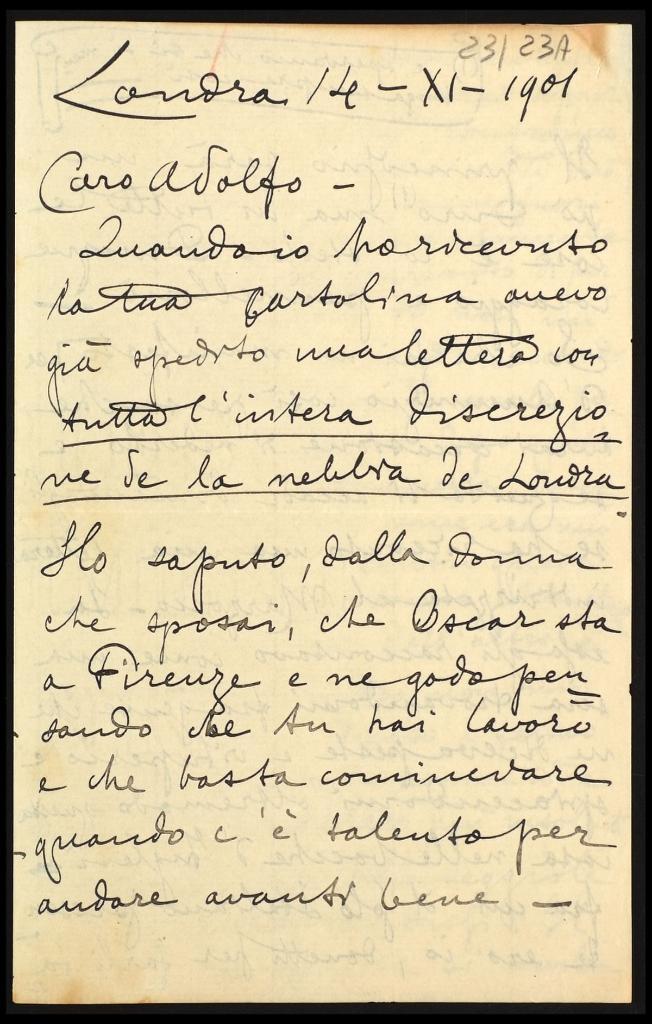 23/23A
Londra 14 - XI - 1901
Caro Adolfo -
Quando io ho ricevuto
la tua cartolina avevo
già spedito una lettera con
tutta l'intera discrezio=
ne de la nebbia de Londra.
Ho saputo, dalla donna
che sposai, che Oscar sta
a Firenze e ne godo pen
sando che tu hai lavoro
e che basta cominciare
quando c'è talento per
andare avanti bene -